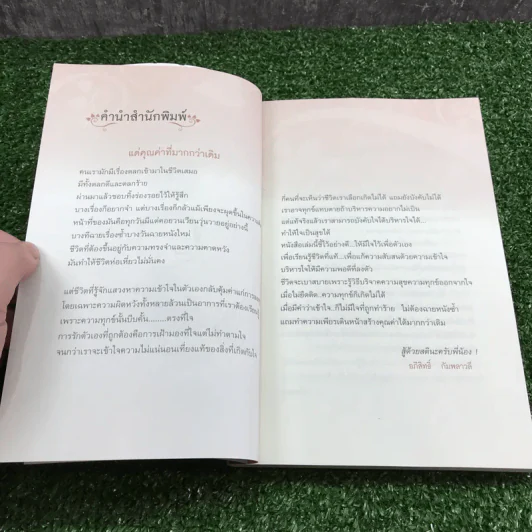 คำนำสำนักพิมพ์
แต่คุณค่าที่มากกว่าเดิม
คนเรามักมีเรื่องตลกเข้ามาในชีวิตเสมอ
มีทั้งตลกดีและตลกร้าย
ผ่านมาแล้วชอบทิ้งร่องรอยไว้ให้รู้สึก
บางเรื่องก็อยากจำ แต่บางเรื่องก็กลัวแม้เพียงจะผุดขึ้นในความ
หน้าที่ของมันคือทุกวันมีแต่คอยวนเวียนวุ่นวายอยู่อย่างนี้
บางทีฉายเรื่องซ้ำบางวันฉายหนังใหม่
ชีวิตที่ต้องขึ้นอยู่กับความทรงจำและความคาดหวัง
มันทำให้ชีวิตห่อเหี่ยวไม่มั่นคง
แต่ชีวิตที่รู้จักแสวงหาความเข้าใจในตัวเองกลับคุ้มค่าแก่การ
โดยเฉพาะความผิดหวังทั้งหลายล้วนเป็นอาการที่เราต้องเรียนรู้
เพราะความทุกข์นั้นบีบคั้น........ตรงที่ใจ
การรักตัวเองที่ถูกต้องคือการเฝ้ามองที่ใจแต่ไม่ทำตามใจ
จนกว่าเราจะเข้าใจความไม่แน่นอนเที่ยงแท้ของสิ่งที่เกิดกับใจ
ก็คนที่จะเห็นว่าชีวิตเราเลือกเกิดไม่ได้ แถมยังบังคับไม่ได้
เราอาจทุกข์แทบตายถ้าบริหารความอยากไม่เป็น
แต่แท้จริงแล้วเราสามารถบังคับใจได้บริหารใจได้...
ทำให้ใจเป็นสุขได้
หนังสือเล่มนี้ชี้ไว้อย่างดี...ให้มีใจไว้เพื่อตัวเอง
เพื่อเรียนรู้ชีวิตที่แท้...เพื่อแก้ความสับสนด้วยความเข้าใจ
บริหารใจให้มีความพอดีที่ลงตัว
ชีวิตจะเบาสบายเพราะรู้วิธีบริหารความสุขความทุกข์ออกจากใจ
เมื่อไม่ยึดติด..ความทุกข์ก็เกิดไม่ได้
เมื่อมีคำว่าเข้าใจ..ก็ไม่มีใจที่ถูกทำร้าย ไม่ต้องฉายหนังซ้ำ
แถมทำความเพียรเดินหน้าสร้างคุณค่าได้มากกว่าเดิม
สู้ด้วยสตินะครับพี่น้อง !
อภิสิทธิ์